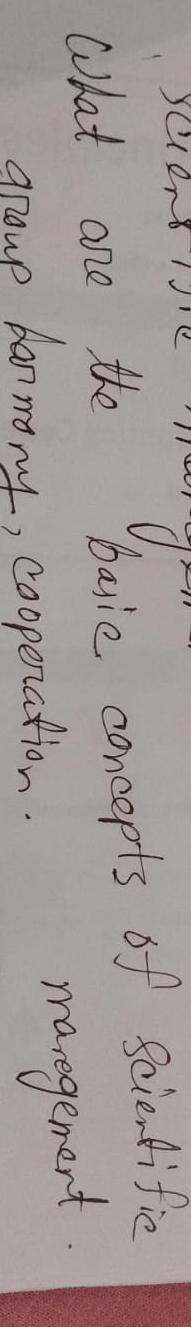 What are the basic concepts of scientific
management.
group harmony, cooperation.